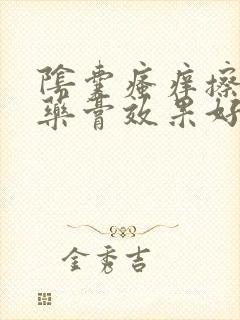 陰囊瘙痒擦
藥膏效果好
金秀吉